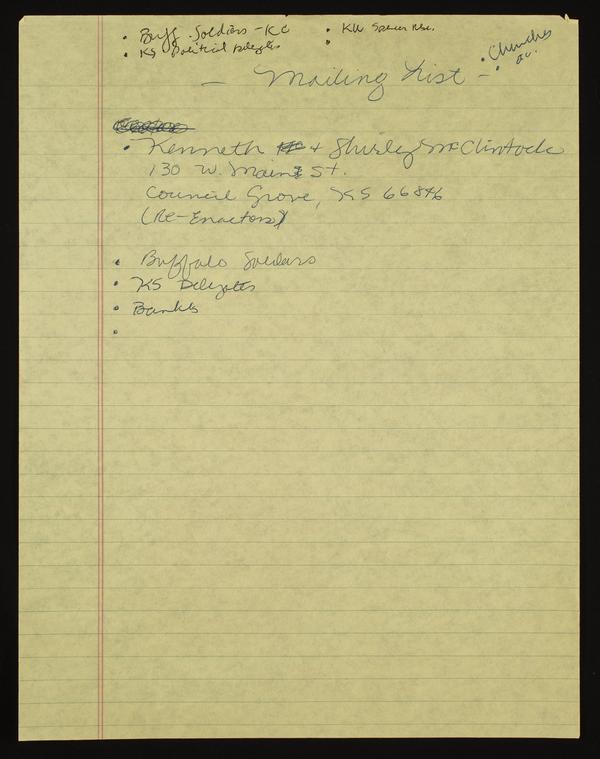 • Buff. Soldiers - KC
• KS Political Delegates
• KU Spencer Rsc.
•
• Churches
•
- Mailing List -
• Kenneth + Shirley McClintock
130 W. Main St.
Council Grove, KS 66846
(Re-Enactors)
• Buffalo Soldiers
• KS Delegates
• Banks
•